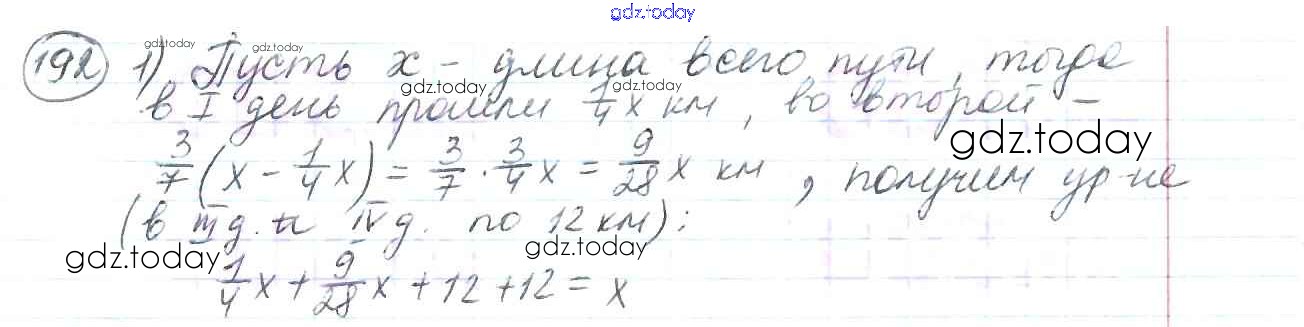 gdz.today
192 1) Пусть x - длина всего пути, тогда
gdz.today gdz.today
в I день прошли 1/4 x км, во второй -
gdz.today gdz.today
gdz.today
3/7 (x - 1/4 x) = 3/7 · 3/4 x = 9/28 x км, получим ур-ие
(в III д. и IV д. по 12 км):
gdz.today gdz.today
1/4 x + 9/28 x + 12 + 12 = x